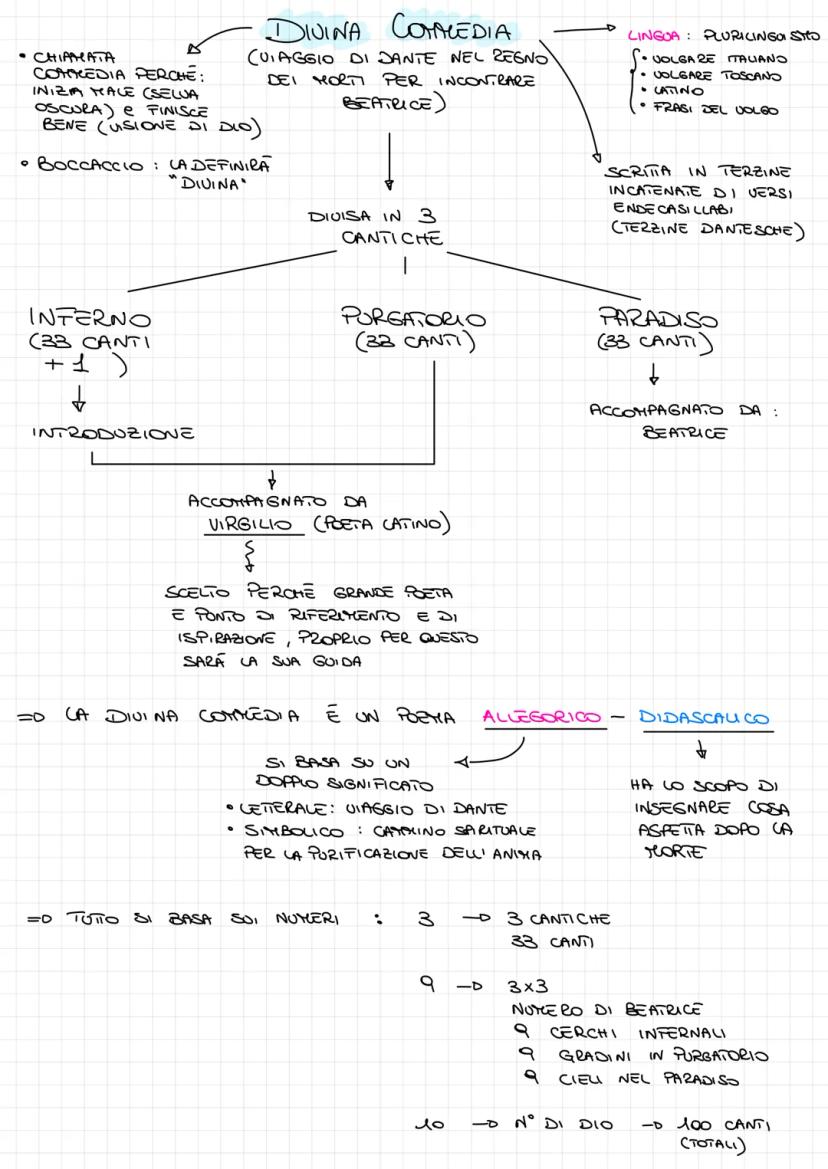 DIVINA COMMEDIA
(VIAGGIO DI DANTE NEL REGNO
DEI MORTI PER INCONTRARE
BEATRICE)
• CHIAMATA
COMMEDIA PERCHÉ:
INIZIA MALE (SELVA
OSCURA) E FINISCE
BENE (VISIONE DI DIO)
• BOCCACCIO : LA DEFINIRÀ
"DIVINA"
LINGUA : PLURILINGUISMO
• VOLGARE ITALIANO
• VOLGARE TOSCANO
• LATINO
• FRASI DEL VOLGO
SCRITTA IN TERZINE
INCATENATE DI VERSI
ENDECASILLABI
(TERZINE DANTESCHE)
DIVISA IN 3
CANTICHE
INFERNO
(33 CANTI
+ 1 )
INTRODUZIONE
PURGATORIO
(33 CANTI)
PARADISO
(33 CANTI)
ACCOMPAGNATO DA :
BEATRICE
ACCOMPAGNATO DA
VIRGILIO (POETA LATINO)
SCELTO PERCHÈ GRANDE POETA
E PUNTO DI RIFERIMENTO E DI
ISPIRAZIONE , PROPRIO PER QUESTO
SARÀ LA SUA GUIDA
⇒ LA DIVINA COMMEDIA È UN POEMA ALLEGORICO - DIDASCALICO
SI BASA SU UN
DOPPLO SIGNIFICATO
• LETTERALE: VIAGGIO DI DANTE
• SIMBOLICO : CAMMINO SPIRITUALE
PER LA PURIFICAZIONE DELL'ANIMA
HA LO SCOPO DI
INSEGNARE COSA
ASPETTA DOPO LA
MORTE
⇒ TUTTO SI BASA SUI NUMERI : 3 → 3 CANTICHE
33 CANTI
9 → 3x3
NUMERO DI BEATRICE
9 CERCHI INFERNALI
9 GRADINI IN PURGATORIO
9 CIELI NEL PARADISO
10 → N° DI DIO → 100 CANTI
(TOTALI)